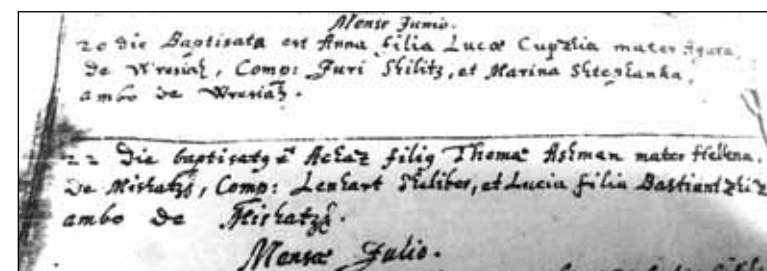 Mense Junio.
20 die Baptisata est Anna filia Lucæ Cupzhia mater Agata,
de Wresiah, Comp: Juri Shilitz, et Marina Shtephanka,
ambo de Wresiah.
22 Die baptisatg ẽ Achaz filig Thomæ Ashman mater Hellena,
De Mishatzh, Comp: Lenhart Shiliber, et Lucia filia Bastiantzhizh
ambo de Mishatzh.
Mensæ Julio.